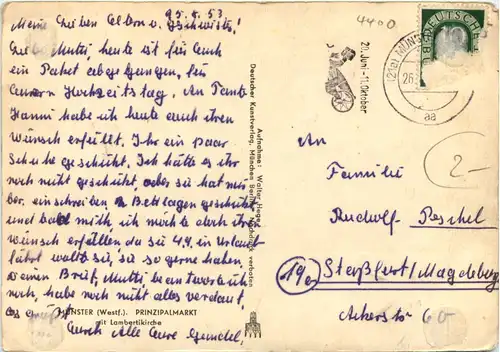 25.8.53.
Meine lieben Eltern u. Geschwister!
Liebe Mutti, heute ist für Euch
ein Paket abgegangen, für
Euern Hochzeitstag. An Tante
Hanni habe ich heute auch ihren
Wunsch erfüllt. Ihr ein paar
Schuhe geschickt. Ich hätte es ihr
noch nicht geschickt, aber sie hat mir
ber. einschreiben geschickt
und bald mith, ich möchte doch ihren
Wunsch erfüllen da sie in Urlaub
fährt sie, sie so gerne haben
Deinen Brief, Mutti, beantworte ich
noch, habe noch nicht alles verdaut.
Es grüßt
Euch Alle Eure Gundel.
MÜNSTER (Westf.). PRINZIPALMARKT
mit Lambertikirche
Aufnahme: Walter Hege
Deutscher Kunstverlag, München Berlin verboten
4400
20. Juni - 11. Oktober
(21a) MÜNS
26.
aa
DEUTSCHE
10
2-
An
Familie
Rudolf Peschel
19a Staßfurt/Magdeburg
Ackerstr. 60